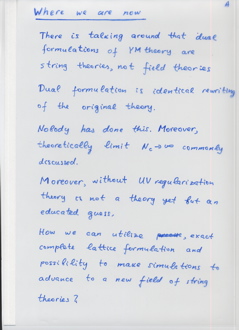 Where we are now
There is talking around that dual
formulations of YM theory are
string theories, not field theories
Dual formulation is identical rewriting
of the original theory.
Nobody has done this. Moreover,
theoretically limit Nc→∞ commonly
discussed.
Moreover, without UV regularization
theory is not a theory yet but an
educated guess.
How we can utilize exact
complete lattice formulation and
possibility to make simulations to
advance to a new field of string
theories?